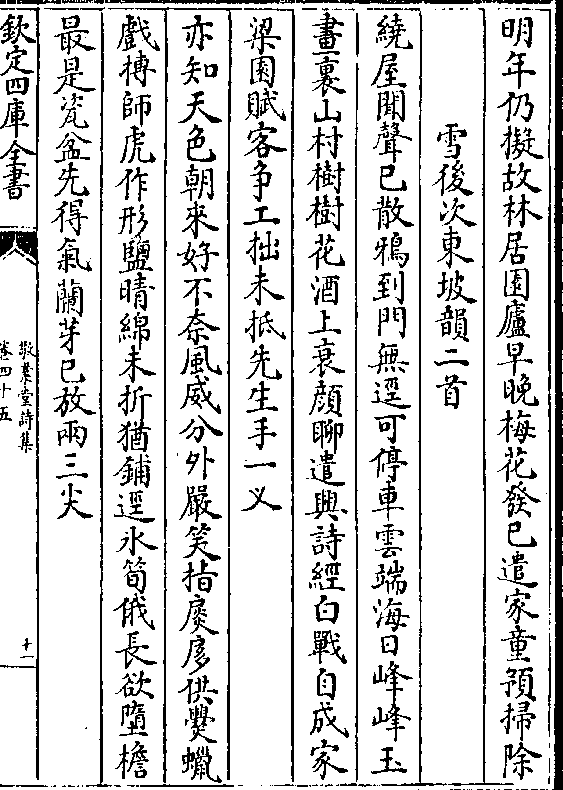 明年仍擬故林居園廬早晚梅花發已遣家童預掃除
雪後次東坡韻二首
繞屋聞聲已散鴉到門無逕可停車雲端海日峰峰玉
畫裏山村樹樹花酒上衰顔聊遣興詩經白戰自成家
梁園賦客争工拙未抵先生手一义
亦知天色朝來好不奈風威分外嚴笑指扊扅供爨蠟
戲摶師虎作形鹽晴綿未折猶鋪逕氷筍俄長欲墮檐
最是瓷盆先得氣蘭芽已放兩三尖
欽定四庫全書
敬業堂詩集
卷四十五
十一